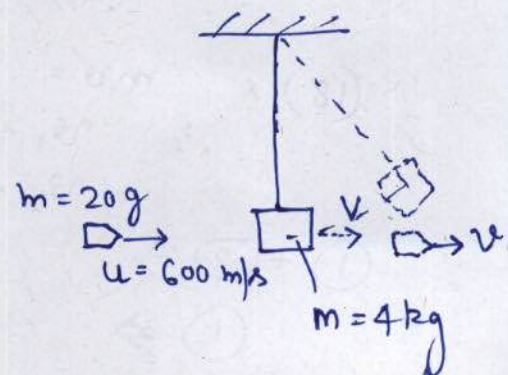 m = 20g
u = 600 m/s
V
v
m = 4kg